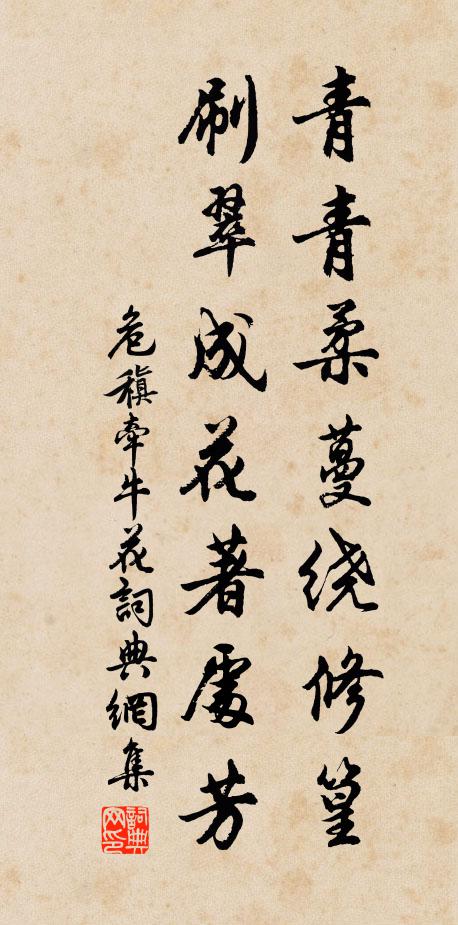 青青柔蔓绕修篁
刷翠成花著處芳
危稹牽牛花詞典網集
詞典网印